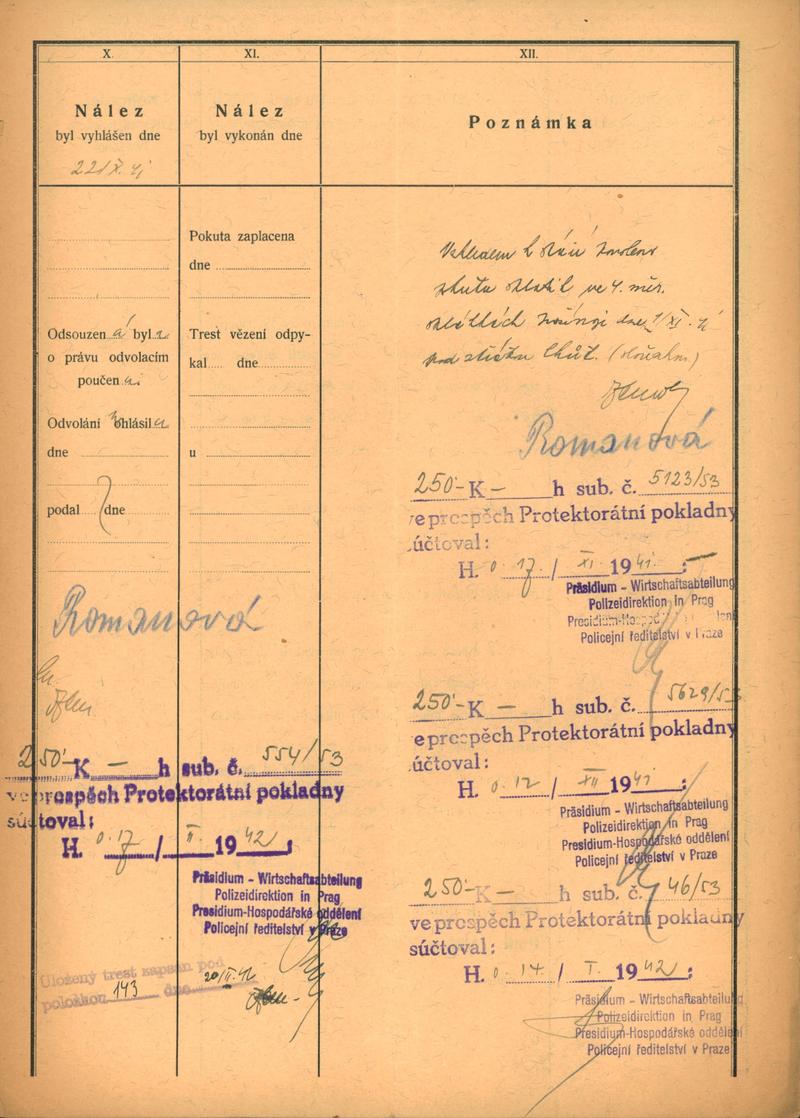 X.
Nález
byl vyhlášen dne
22/X. 41
Odsouzen á byl a
o právu odvolacím
poučen a.
Odvolání ohlásil a
dne
podal dne
Romanová
250·- K — h sub. č. 554/53
ve prospěch Protektorátní pokladny
súčtoval:
H. 0. 17 / II. 1942 :
Präsidium - Wirtschaftsabteilung
Polizeidirektion in Prag
Presidium-Hospodářské oddělení
Policejní ředitelství v Praze
Uložený trest zapsán pod
položkou 143 dne 20/II. 42
XI.
Nález
byl vykonán dne
Pokuta zaplacena
dne
Trest vězení odpy-
kal dne
u
XII.
Poznámka
ve 4. měs.
dne 1/XI. 41
Romanová
250·- K — h sub. č. 5123/53
ve prospěch Protektorátní pokladny
súčtoval:
H. 0. 17 / XI. 1941 :
Präsidium - Wirtschaftsabteilung
Polizeidirektion in Prag
Presidium-Hospodářské oddělení
Policejní ředitelství v Praze
250·- K — h sub. č. 5629/53
ve prospěch Protektorátní pokladny
súčtoval:
H. 0. 12 / XII 1941 :
Präsidium - Wirtschaftsabteilung
Polizeidirektion in Prag
Presidium-Hospodářské oddělení
Policejní ředitelství v Praze
250·- K — h sub. č. 46/53
ve prospěch Protektorátní pokladny
súčtoval:
H. 0. 14. / I. 1942 :
Präsidium - Wirtschaftsabteilung
Polizeidirektion in Prag
Presidium-Hospodářské oddělení
Policejní ředitelství v Praze